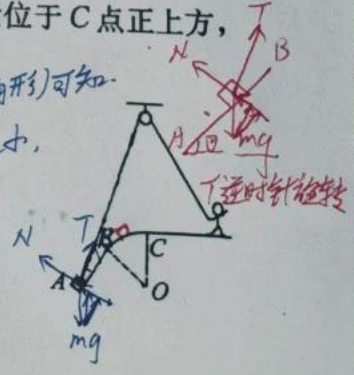 位于 C 点正上方，
角形)可知.
小,
T
N
B
A
mg
T逆时针旋转
N
T
B
C
A
O
mg